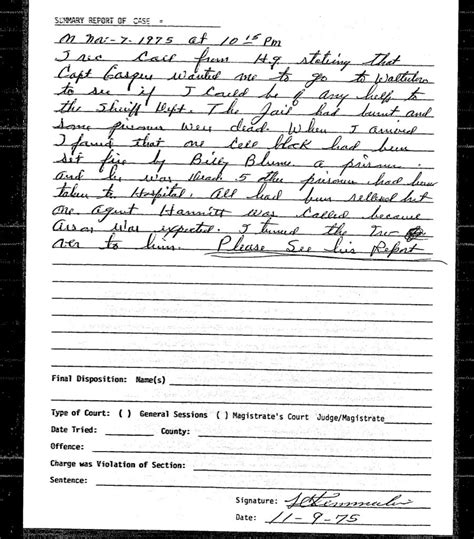 SUMMARY REPORT OF CASE =
On Nov-7-1975 at 10 15 Pm
I rec Call from Hq stateing that
Capt Gasque wanted me to go to Walterboro
to see if I Could be of any help to
the Sheriff Dept. The Jail had burnt and
some prisoner were dead. When I arrived
I found that one Cell block had been
set fire by Billy a prisoner
and he was dead 5 other prisoner had been
taken to Hospital. All had been released but
one Agent was Called because
Arson was expected. I turned the
over to him. Please See his Report
Final Disposition: Name(s)
Type of Court: ( ) General Sessions ( ) Magistrate's Court Judge/Magistrate
Date Tried: County:
Offence:
Charge was Violation of Section:
Sentence:
Signature:
Date: 11-9-75